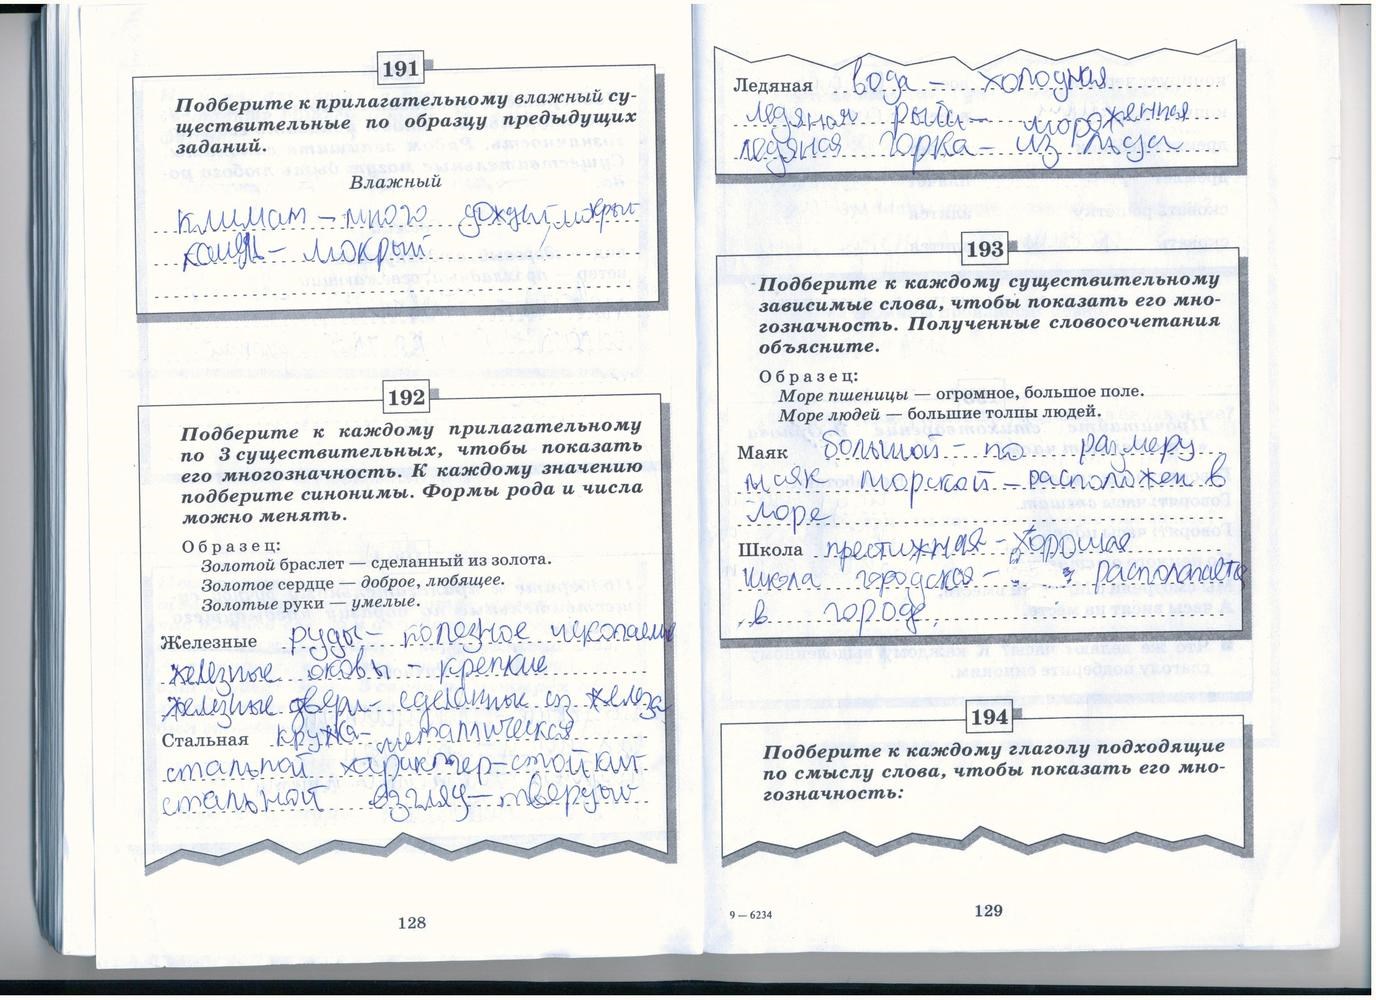 191
Подберите к прилагательному влажный су-
ществительные по образцу предыдущих
заданий.
Влажный
климат – много дождей, мокрый
– мокрый
192
Подберите к каждому прилагательному
по 3 существительных, чтобы показать
его многозначность. К каждому значению
подберите синонимы. Формы рода и числа
можно менять.
Образец:
Золотой браслет — сделанный из золота.
Золотое сердце — доброе, любящее.
Золотые руки — умелые.
Железные руды – полезное ископаемые
железные оковы – крепкие
железные двери – сделанные из железа
Стальная кружка – металлическая
стальной характер – стойкий
стальной взгляд – твердый
128
Ледяная вода – холодная
ледяная рыба – мороженная
ледяная горка – из льда
193
Подберите к каждому существительному
зависимые слова, чтобы показать его мно-
гозначность. Полученные словосочетания
объясните.
Образец:
Море пшеницы — огромное, большое поле.
Море людей — большие толпы людей.
Маяк большой – по размеру
маяк морской – расположен в
море
Школа престижная – хорошая
школа городская – располагается
в городе
194
Подберите к каждому глаголу подходящие
по смыслу слова, чтобы показать его мно-
гозначность:
9 — 6234
129